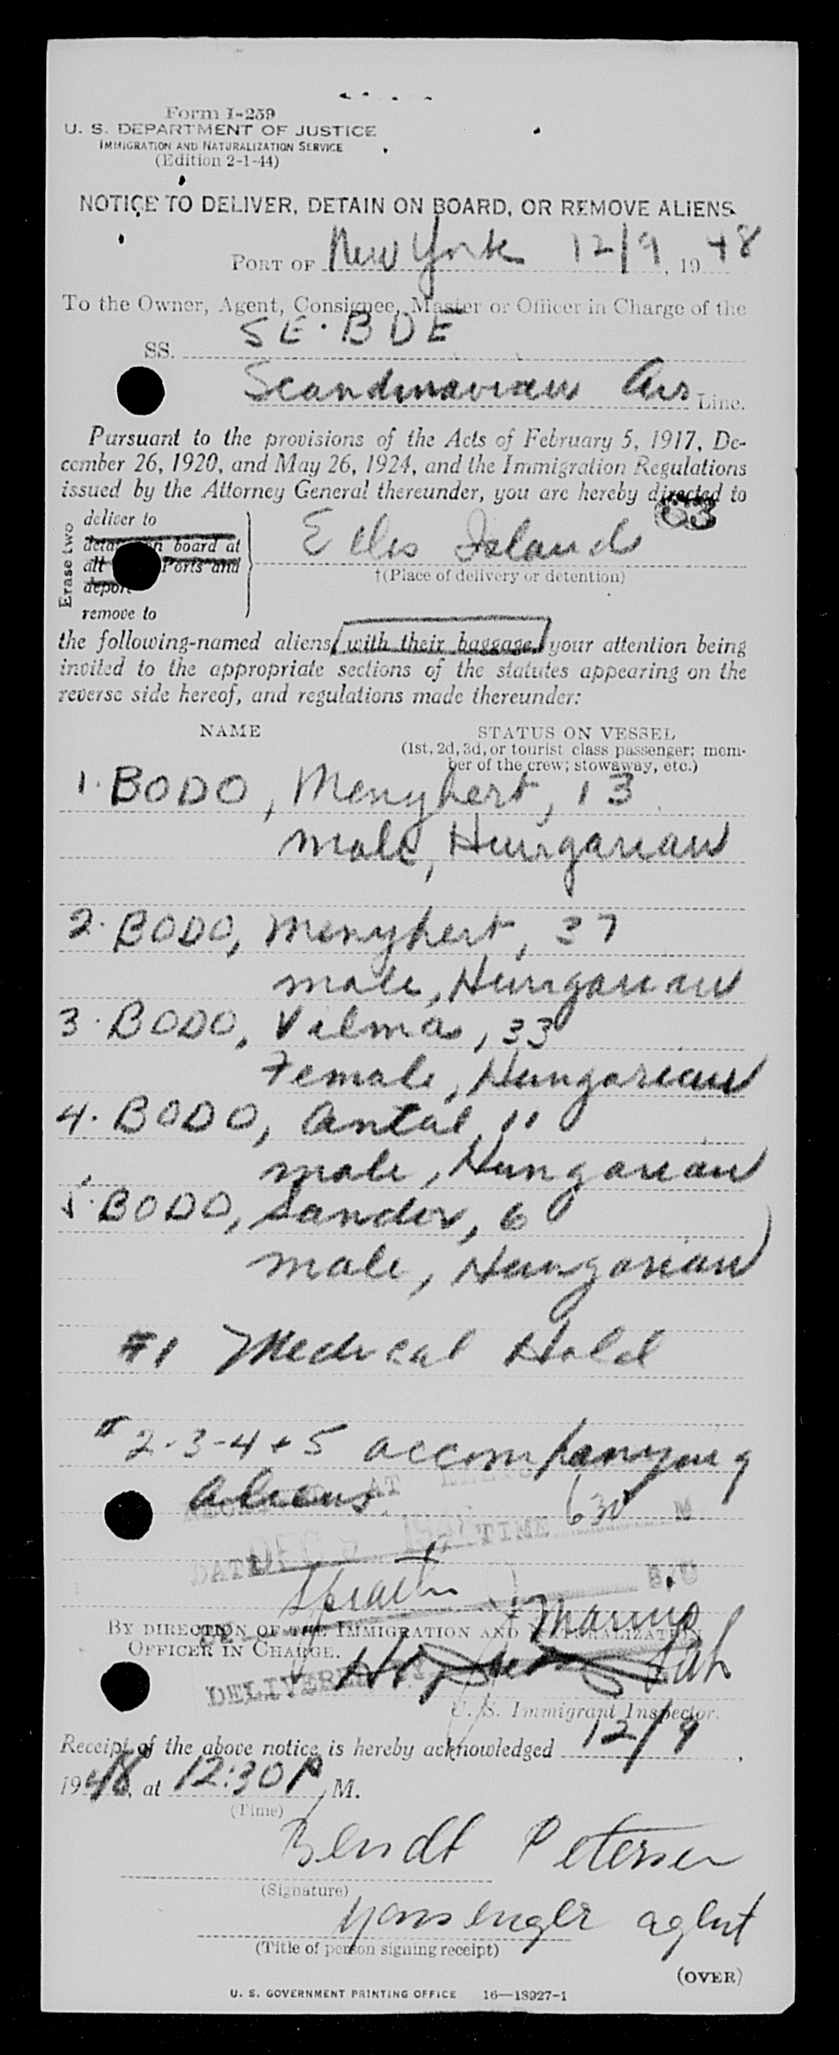 Form I-259
U. S. DEPARTMENT OF JUSTICE
IMMIGRATION AND NATURALIZATION SERVICE
(Edition 2-1-44)
NOTICE TO DELIVER, DETAIN ON BOARD, OR REMOVE ALIENS
PORT OF New York 12/9, 19 48
To the Owner, Agent, Consignee, Master or Officer in Charge of the
SS. SE-BDE
Scandinavian Air Line.
Pursuant to the provisions of the Acts of February 5, 1917, De-
cember 26, 1920, and May 26, 1924, and the Immigration Regulations
issued by the Attorney General thereunder, you are hereby directed to
63
Erase two
deliver to
detain on board at
all Ports and
deport
remove to
Ellis Island
†(Place of delivery or detention)
the following-named aliens, with their baggage, your attention being
invited to the appropriate sections of the statutes appearing on the
reverse side hereof, and regulations made thereunder:
NAME STATUS ON VESSEL
(1st, 2d, 3d, or tourist class passenger; mem-
ber of the crew; stowaway, etc.)
1. BODO, Menyhert, 13
male, Hungarian
2. BODO, Menyhert, 37
male, Hungarian
3. BODO, Vilma, 33
Female, Hungarian
4. BODO, Antal, 11
male, Hungarian
5. BODO, Sandor, 6
male, Hungarian
#1 Medical Hold
# 2-3-4+5 accompanying
aliens.
AT
630 M
DATE DEC TIME
BY DIRECTION OF THE IMMIGRATION AND NATURALIZATION
OFFICER IN CHARGE.
DELIVERED
U. S. Immigrant Inspector.
Receipt of the above notice is hereby acknowledged 12/9,
1948, at 12:30 P. M.
(Time)
Bendt Petersen
(Signature)
passenger agent
(Title of person signing receipt)
(OVER)
U. S. GOVERNMENT PRINTING OFFICE 16—18927-1